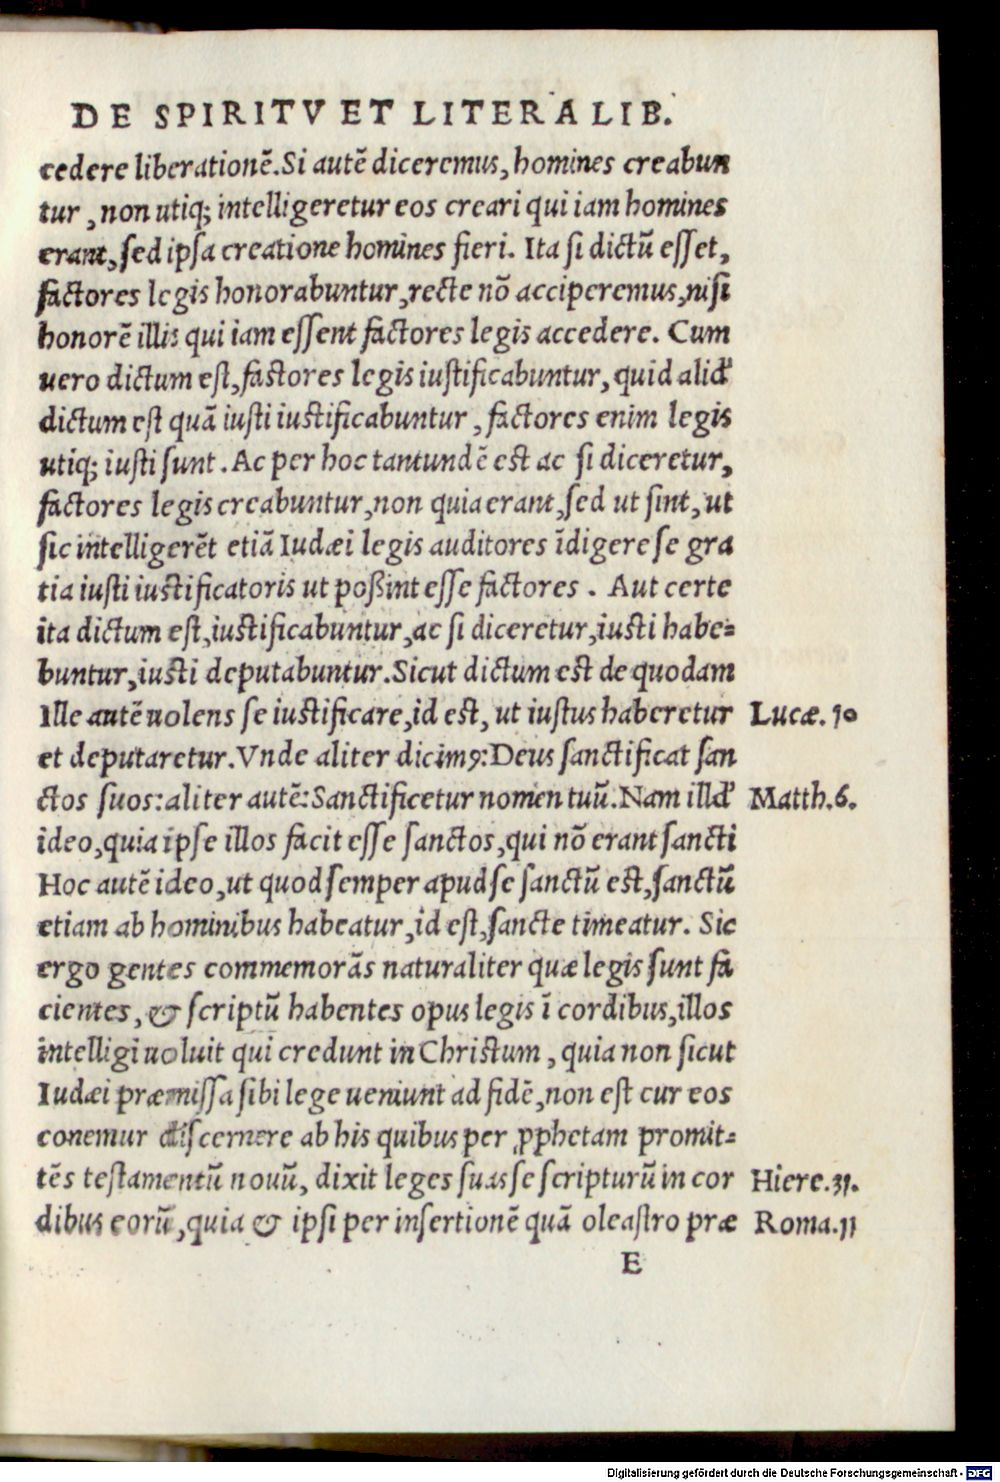 DE SPIRITV ET LITERA LIB.
cedere liberationē. Si autē diceremus, homines creabun
tur, non utiq; intelligeretur eos creari qui iam homines
erant, sed ipsa creatione homines fieri. Ita si dictū esset,
factores legis honorabuntur, recte nō acciperemus, nisi
honorē illis qui iam essent factores legis accedere. Cum
uero dictum est, factores legis iustificabuntur, quid aliđ
dictum est quā iusti iustificabuntur, factores enim legis
utiq; iusti sunt. Ac per hoc tantundē est ac si diceretur,
factores legis creabuntur, non quia erant, sed ut sint, ut
sic intelligerēt etiā Iudæi legis auditores īdigere se gra
tia iusti iustificatoris ut poßint esse factores. Aut certe
ita dictum est, iustificabuntur, ac si diceretur, iusti habe=
buntur, iusti deputabuntur. Sicut dictum est de quodam
Ille autē uolens se iustificare, id est, ut iustus haberetur Lucæ. 10
et deputaretur. Vnde aliter dicimꝰ: Deus sanctificat san
ctos suos: aliter autē: Sanctificetur nomen tuū. Nam illđ Matth. 6.
ideo, quia ipse illos facit esse sanctos, qui nō erant sancti
Hoc autē ideo, ut quod semper apud se sanctū est, sanctū
etiam ab hominibus habeatur, id est, sancte timeatur. Sic
ergo gentes commemorās naturaliter quæ legis sunt fa
cientes, & scriptū habentes opus legis ī cordibus, illos
intelligi uoluit qui credunt in Christum, quia non sicut
Iudæi præmissa sibi lege ueniunt ad fidē, non est cur eos
conemur discernere ab his quibus per ꝓphetam promit=
tēs testamentū nouū, dixit leges suas se scripturū in cor Hiere. 31.
dibus eorū, quia & ipsi per insertionē quā oleastro præ Roma. 11
E
Digitalisierung gefördert durch die Deutsche Forschungsgemeinschaft - DFG